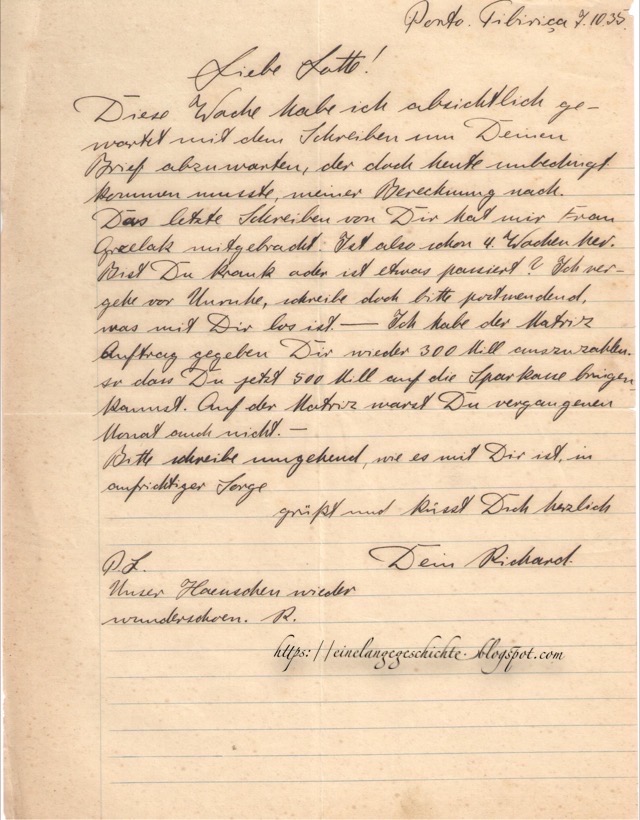 Porto. Tibiriça 7.10.35.
Liebe Lotte!
Diese Woche habe ich absichtlich ge-
wartet mit dem Schreiben um Deinen
Brief abzuwarten, der doch heute unbedingt
kommen musste, meiner Berechnung nach.
Das letzte Schreiben von Dir hat mir Frau
mitgebracht. Ist also schon 4 Wochen her.
Bist Du krank oder ist etwas passiert? Ich ver-
gehe vor Unruhe, schreibe doch bitte postwendend,
was mit Dir los ist. — Ich habe der Matriz
Auftrag gegeben Dir wieder 300 Mill auszuzahlen.
so dass Du jetzt 500 Mill auf die Sparkasse bringen
kannst. Auf der Matriz warst Du vergangenen
Monat auch nicht. —
Bitte schreibe umgehend, wie es mit Dir ist, in
aufrichtiger Sorge
grüßt und küsst Dich herzlich
Dein Richard.
P.S.
Unser Haeuschen wieder
wunderschoen. R.
https://einelangegeschichte.blogspot.com